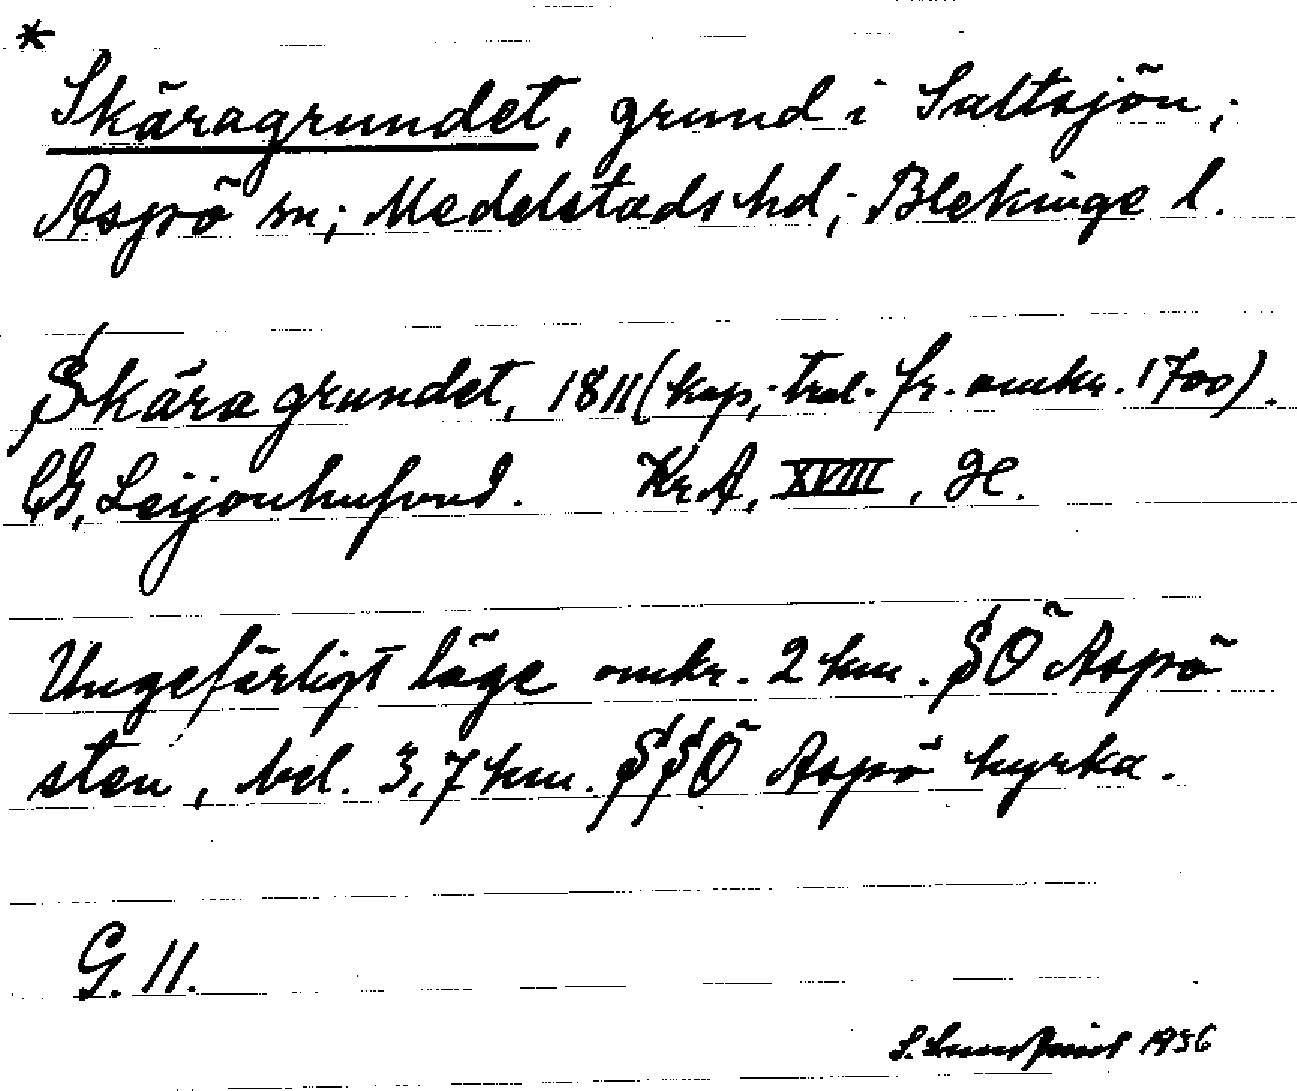 *
Skäragrundet, grund i Saltsjön;
Aspö sn; Medelstads hd; Blekinge l.
Skäragrundet, 1811 (kop; trol. fr. omkr. 1700).
CG, Leijonhufvud. KrA, XVIII, H.
Ungefärligt läge omkr. 2 km. SÖ Aspö
sten, bel. 3,7 km. SSÖ Aspö kyrka.
G. 11.
1936